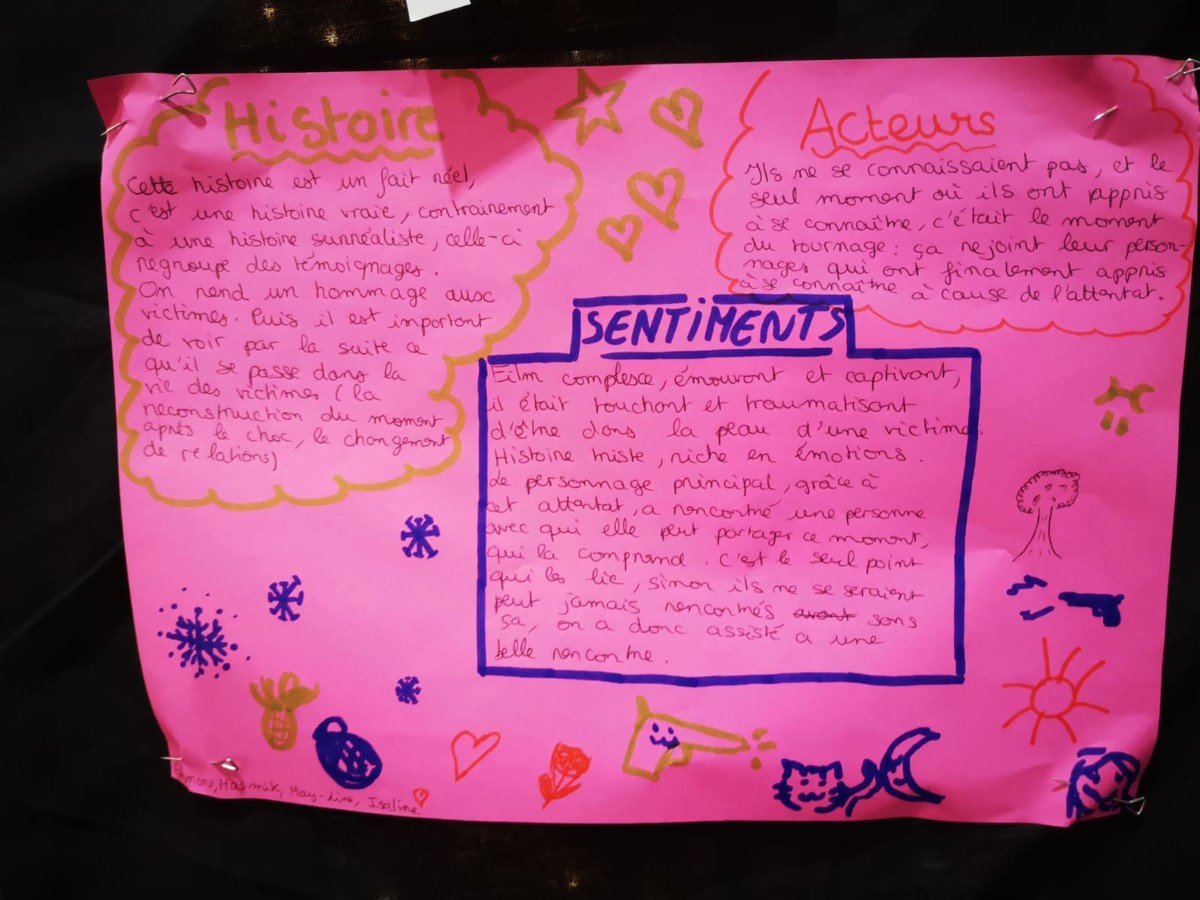 Histoire
Cette histoire est un fait réel,
c'est une histoire vraie, contrairement
à une histoire surréaliste, celle-ci
regroupe des témoignages.
On rend un hommage aux
victimes. Puis il est important
de voir par la suite ce
qu'il se passe dans la
vie des victimes (la
reconstruction du moment
après le choc, le changement
de relations)
Acteurs
Ils ne se connaissaient pas, et le
seul moment où ils ont appris
à se connaître, c'était le moment
du tournage : ça rejoint leur person-
nages qui ont finalement appris
à se connaître à cause de l'attentat.
SENTIMENTS
Film complexe, émouvant et captivant,
il était touchant et traumatisant
d'être dans la peau d'une victime.
Histoire triste, riche en émotions.
Le personnage principal, grâce à
cet attentat, a rencontré une personne
avec qui elle peut partager ce moment,
qui la comprend. C'est le seul point
qui les lie, sinon ils ne se seraient
peut jamais rencontrés avant sans
ça, on a donc assisté a une
belle rencontre.
Hasmik, May-Line, Isaline